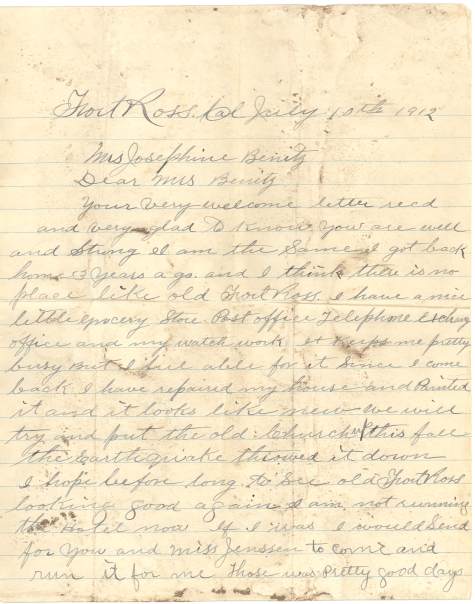 Fort Ross. Cal July 10th 1912
Mrs Josephine Benitz
Dear Mrs Benitz
Your Very welcome letter recd
and very glad to know you are well
and Strong I am the Same I got back
home 3 Years a go. and I think there is no
place like old Fort Ross. I have a nice
little grocery Store Post office Telephone Exchang
office and my watch work it Keeps me pretty
busy But I fill able for it Since I come
back I have repaired my house and Painted
it and it looks like new we will
try and put the old Church up this fall
the Earthquake throwed it down
I hope before long to See old Fort Ross
looking good again I am not running
the Hotel now If I was I would Send
for You and Miss Jenssen to come and
run it for me Those was pretty good days